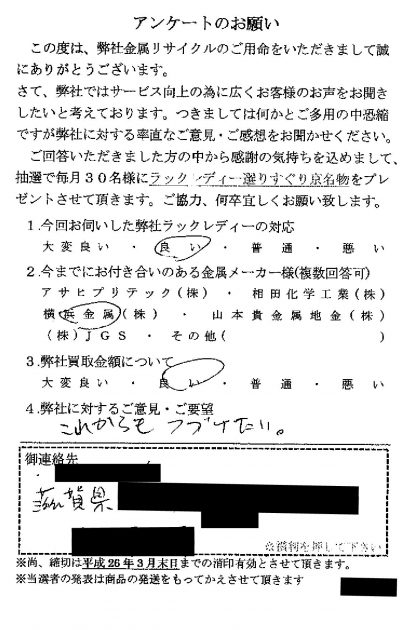 アンケートのお願い
この度は、弊社金属リサイクルのご用命をいただきまして誠
にありがとうございます。
さて、弊社ではサービス向上の為に広くお客様のお声をお聞き
したいと考えております。つきましては何かとご多用の中恐縮
ですが弊社に対する率直なご意見・ご感想をお聞かせください。
ご回答いただきました方の中から感謝の気持ちを込めまして、
抽選で毎月30名様にラックレディー選りすぐり京名物をプレ
ゼントさせて頂きます。ご協力、何卒宜しくお願い致します。
1.今回お伺いした弊社ラックレディーの対応
大変良い ・ 良い ・ 普通 ・ 悪い
2.今までにお付き合いのある金属メーカー様(複数回答可)
アサヒプリテック(株) ・ 相田化学工業(株)
横浜金属(株) ・ 山本貴金属地金(株)
(株)JGS ・ その他( )
3.弊社買取金額について
大変良い ・ 良い ・ 普通 ・ 悪い
4.弊社に対するご意見・ご要望
これからも つづけたい。
御連絡先
滋賀県
を押して下さい
※尚、締切は平成26年3月末日までの消印有効とさせて頂きます。
※当選者の発表は商品の発送をもってかえさせて頂きます